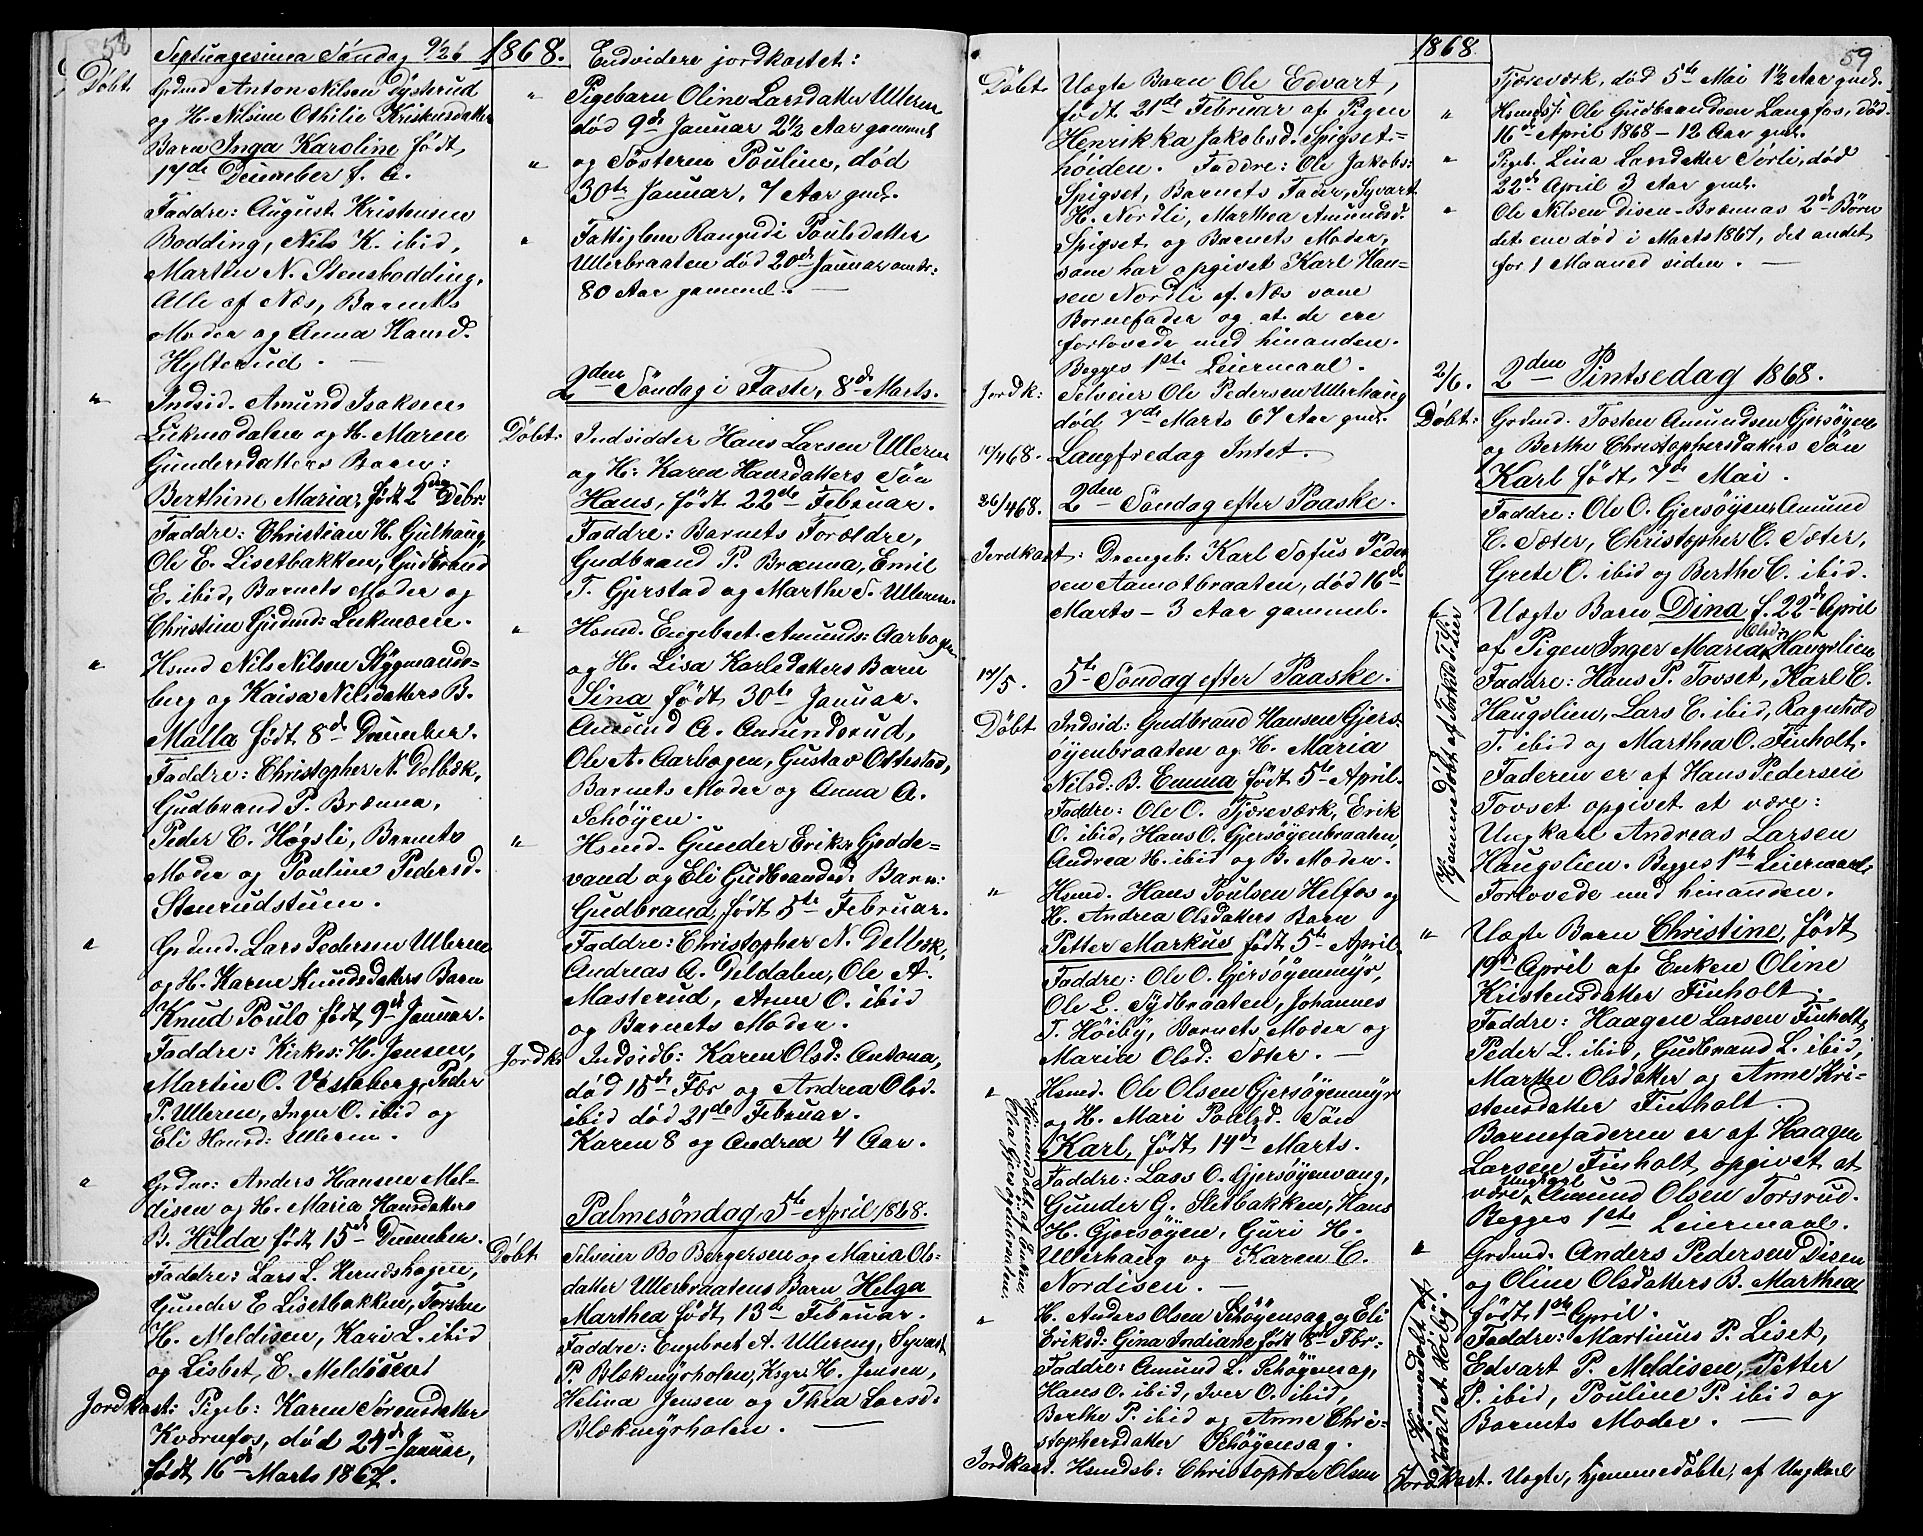 58
Septuagesima Söndag 9/2 6 1868.
Döbt. Grdmd Anton Nilsen Dysterud
og H. Nilsine Othilie Kristensdatter
Barn Inga Karoline født
17de December f. A.
Faddre: August Kristensen
Bodding, Nils K. ibid,
Martin N. Stensbodding,
Alle af Næs, Barnets
Moder og Anna Hansd.
Hylterud. —
" Indsid. Amund Isaksen
Lukmodalen og H. Maren
Gundersdatters Barn:
Berthine Maria, født 2den Debr.
Faddre: Christian H. Gulhaug,
Ole E. Lisetbakken, Gudbrand
E. ibid, Barnets Moder og
Christine Gudmd: Lukmoen.
" Hsmd Nils Nilsen Stygmands-
berg og Kaisa Nilsdatters B.
Malla født 8de December.
Faddre: Christopher N. Dolbæk,
Gudbrand P. Brænna,
Peder C. Høgsli, Barnets
Moder og Pouline Pedersd.
Stenrudstuen.
" Grdmd. Lars Pedersen Ulleren
og H. Karen Knudsdatters Barn
Knud Poulo født 9de Januar.
Faddre: Kirkes: H. Jensen,
Martin O. Vestaberg, Peder
P. Ulleren, Inger O. ibid og
Eli Hansd: Ulleren.
" Grdm: Anders Hansen Mel-
disen og H. Maria Hansdatters
B. Hilda født 15de December.
Faddre: Lars L. Herudshagen,
Gunder E Lisetbakken, Torsten
H. Meldisen, Kari L. ibid
og Lisbet E. Meldisen
Jordkast: Pigeb: Karen Sørensdatter
Kværnfos, død 24de Januar,
født 16de Marts 1867.
Endvidere jordkastet:
" Pigebarn Oline Larsdatter Ulleren
død 9de Januar 2 1/2 Aar gammel
" og Søsteren Pouline, død
30te Januar, 7 Aar gml.
" Fattiglem Rangudi Poulsdatter
Ullerbraaten død 20de Januar omtr:
80 Aar gammel. —
2den Söndag i Faste, 8de Marts.
Döbt: Indsidder Hans Larsen Ulleren
og H. Karen Hansdatters Søn
Hans, født 22de Februar.
Faddre: Barnets Forældre,
Gudbrand P. Brænna, Emil
T. Gjerstad og Marthe S. Ulleren.
" Hsmd. Engebret Amunds: Aarbogen
og H. Lisa Karlsdatters Barn
Sina født 30te Januar.
Amund A. Amundsrud,
Ole A. Aarbogen, Gustav Ottestad,
Barnets Moder og Anna A.
Schøyen.
" Hsmd. Gunder Eriks Gjedde-
vand og Eli Gudbrandsd. Barn:
Gudbrand, født 5te Februar.
Faddre: Christopher N. Delbæk,
Andreas A. Dildalen, Ole A.
Masterud, Anne O. ibid
og Barnets Moder.
Jordk: Indsidb: Karen Olsd: Antona,
død 15de Fbr og Andrea Olsd.
ibid død 21de Februar.
Karen 8 og Andrea 4 Aar.
Palmesöndag, 5te April 1868.
Döbt Selveier Bo Bergersen og Maria Ols-
datter Ullerbraatens Barn Helga
Marthea født 13de Februar.
Faddre: Engebret A. Ulleren, Syvart
P. Blækmyrholen, Ksgr. H. Jensen,
Helina Jensen og Thea Larsd:
Blækmyrholen. —
1868 59
Døbt. Uægte Barn Ole Edvart,
født 21de Februar af Pigen
Henrikka Jakobsd. Spigset-
høiden. Faddre: Ole Jakobs:
Spigset, Barnets Fader, Syvart
H. Nordli, Marthea Amundsd.
Spigset og Barnets Moder,
som har opgivet Karl Han-
sen Nordli af Næs være
Barnefader og at de ere
forlovede med hinanden.
Begges 1ste Leiermaal.
Jordk: Selveier Ole Pedersen Ullerhaug
død 7de Marts 67 Aar gml.
10/4 68. Langfredag Intet.
26/4 68. 2den Söndag efter Paaske.
Jordkast: Drengeb. Karl Sofus Peder
sen Aamotbraaten, død 16de
Marts – 3 Aar gammel.
17/5. 5te Söndag efter Paaske.
Döbt Indsid: Gudbrand Hansen Gjers-
øyenbraaten og H. Maria
Nilsd. B. Emma født 5te April.
Faddre: Ole O. Tjæreværk, Erik
O. ibid, Hans O. Gjersøyenbraaten,
Andrea H. ibid og B. Moder.
" Hsmd. Hans Poulsen Helfos og
H. Andrea Olsdatters Barn
Petter Markus født 5te April
Faddre: Ole O. Gjersøyenmyr,
Ole L. Sydbraaten, Johannes
T. Høiby, Barnets Moder og
Maria Olsd: Sæter. —
" Hsmd. Ole Olsen Gjersøyenmyr
og H. Mari Poulsd. Søn
Karl, født 14de Marts.
Faddre: Lass O. Gjersøyenvang,
Gunder G. Sletbakken, Hans
H. Gjersøyen, Guri H.
Ullerhaug og Karen C.
Nordisen. —
" H. Anders Olsen Schøyensag og Eli
Eriksd: Gina Indiane født 8de Fbr.
Faddre: Amund L. Schøyensag,
Hans O. ibid, Iver O. ibid,
Berthe P. ibid og Anne Chri-
stophersdatter Schøyensag.
Jordkast. Hsmdsb: Christopher Olsen
Tjæreværk, død 5te Mai 1 1/2 Aar gml.
" Hsmds: Ole Gudbrandsen Langfos, død
16de April 1868 – 12 Aar gml.
" Pigeb. Lina Larsdatter Sørli, død
22de April 3 Aar gml.
" Ole Nilsen Disen-Brænnas 2de Børn
det ene død i Marts 1867, det andet
for 1 Maaned siden. —
2/6. 2den Pintsedag 1868.
Døbt: Grdmd. Tosten Amundsen Gjersøyen
og Berthe Christophersdatters Søn
Karl født 7de Mai.
Faddre: Ole O. Gjersøyen, Amund
C. Sæter, Christopher C. Sæter,
Grete O. ibid og Berthe C. ibid.
Uægte Barn Dina f. 22de April
af Pigen Inger Maria Olsd: Haugslien
Faddre: Hans P. Tovset, Karl C.
Haugslien, Lars C. ibid, Ragnhild
T. ibid og Marthea O. Finholt.
Faderen er af Hans Pedersen
Tovset opgivet at være:
Ungkarl Andreas Larsen
Haugslien. Begges 1ste Leiermaal.
Forlovede med hinanden.
" Uægte Barn Christine, født
19de April af Enken Oline
Kristensdatter Finholt.
Faddre: Haagen Larsen Finholt,
Peder L. ibid, Gudbrand L. ibid,
Marthe Olsdatter og Anne Kri-
stensdatter Finholt.
Barnefaderen er af Haagen
Larsen Finholt opgivet at
være Ungkarl Amund Olsen Torsrud.
Begges 1ste Leiermaal.
" Grdmd. Anders Pedersen Disen
og Oline Olsdatters B. Marthea
født 1ste April.
Faddre: Martinus P. Liset,
Edvart P. Meldisen, Petter
P. ibid, Pouline P. ibid og
Barnets Moder. —
Jordkast. Uægte, hjemmedøbte, af Ungkarl